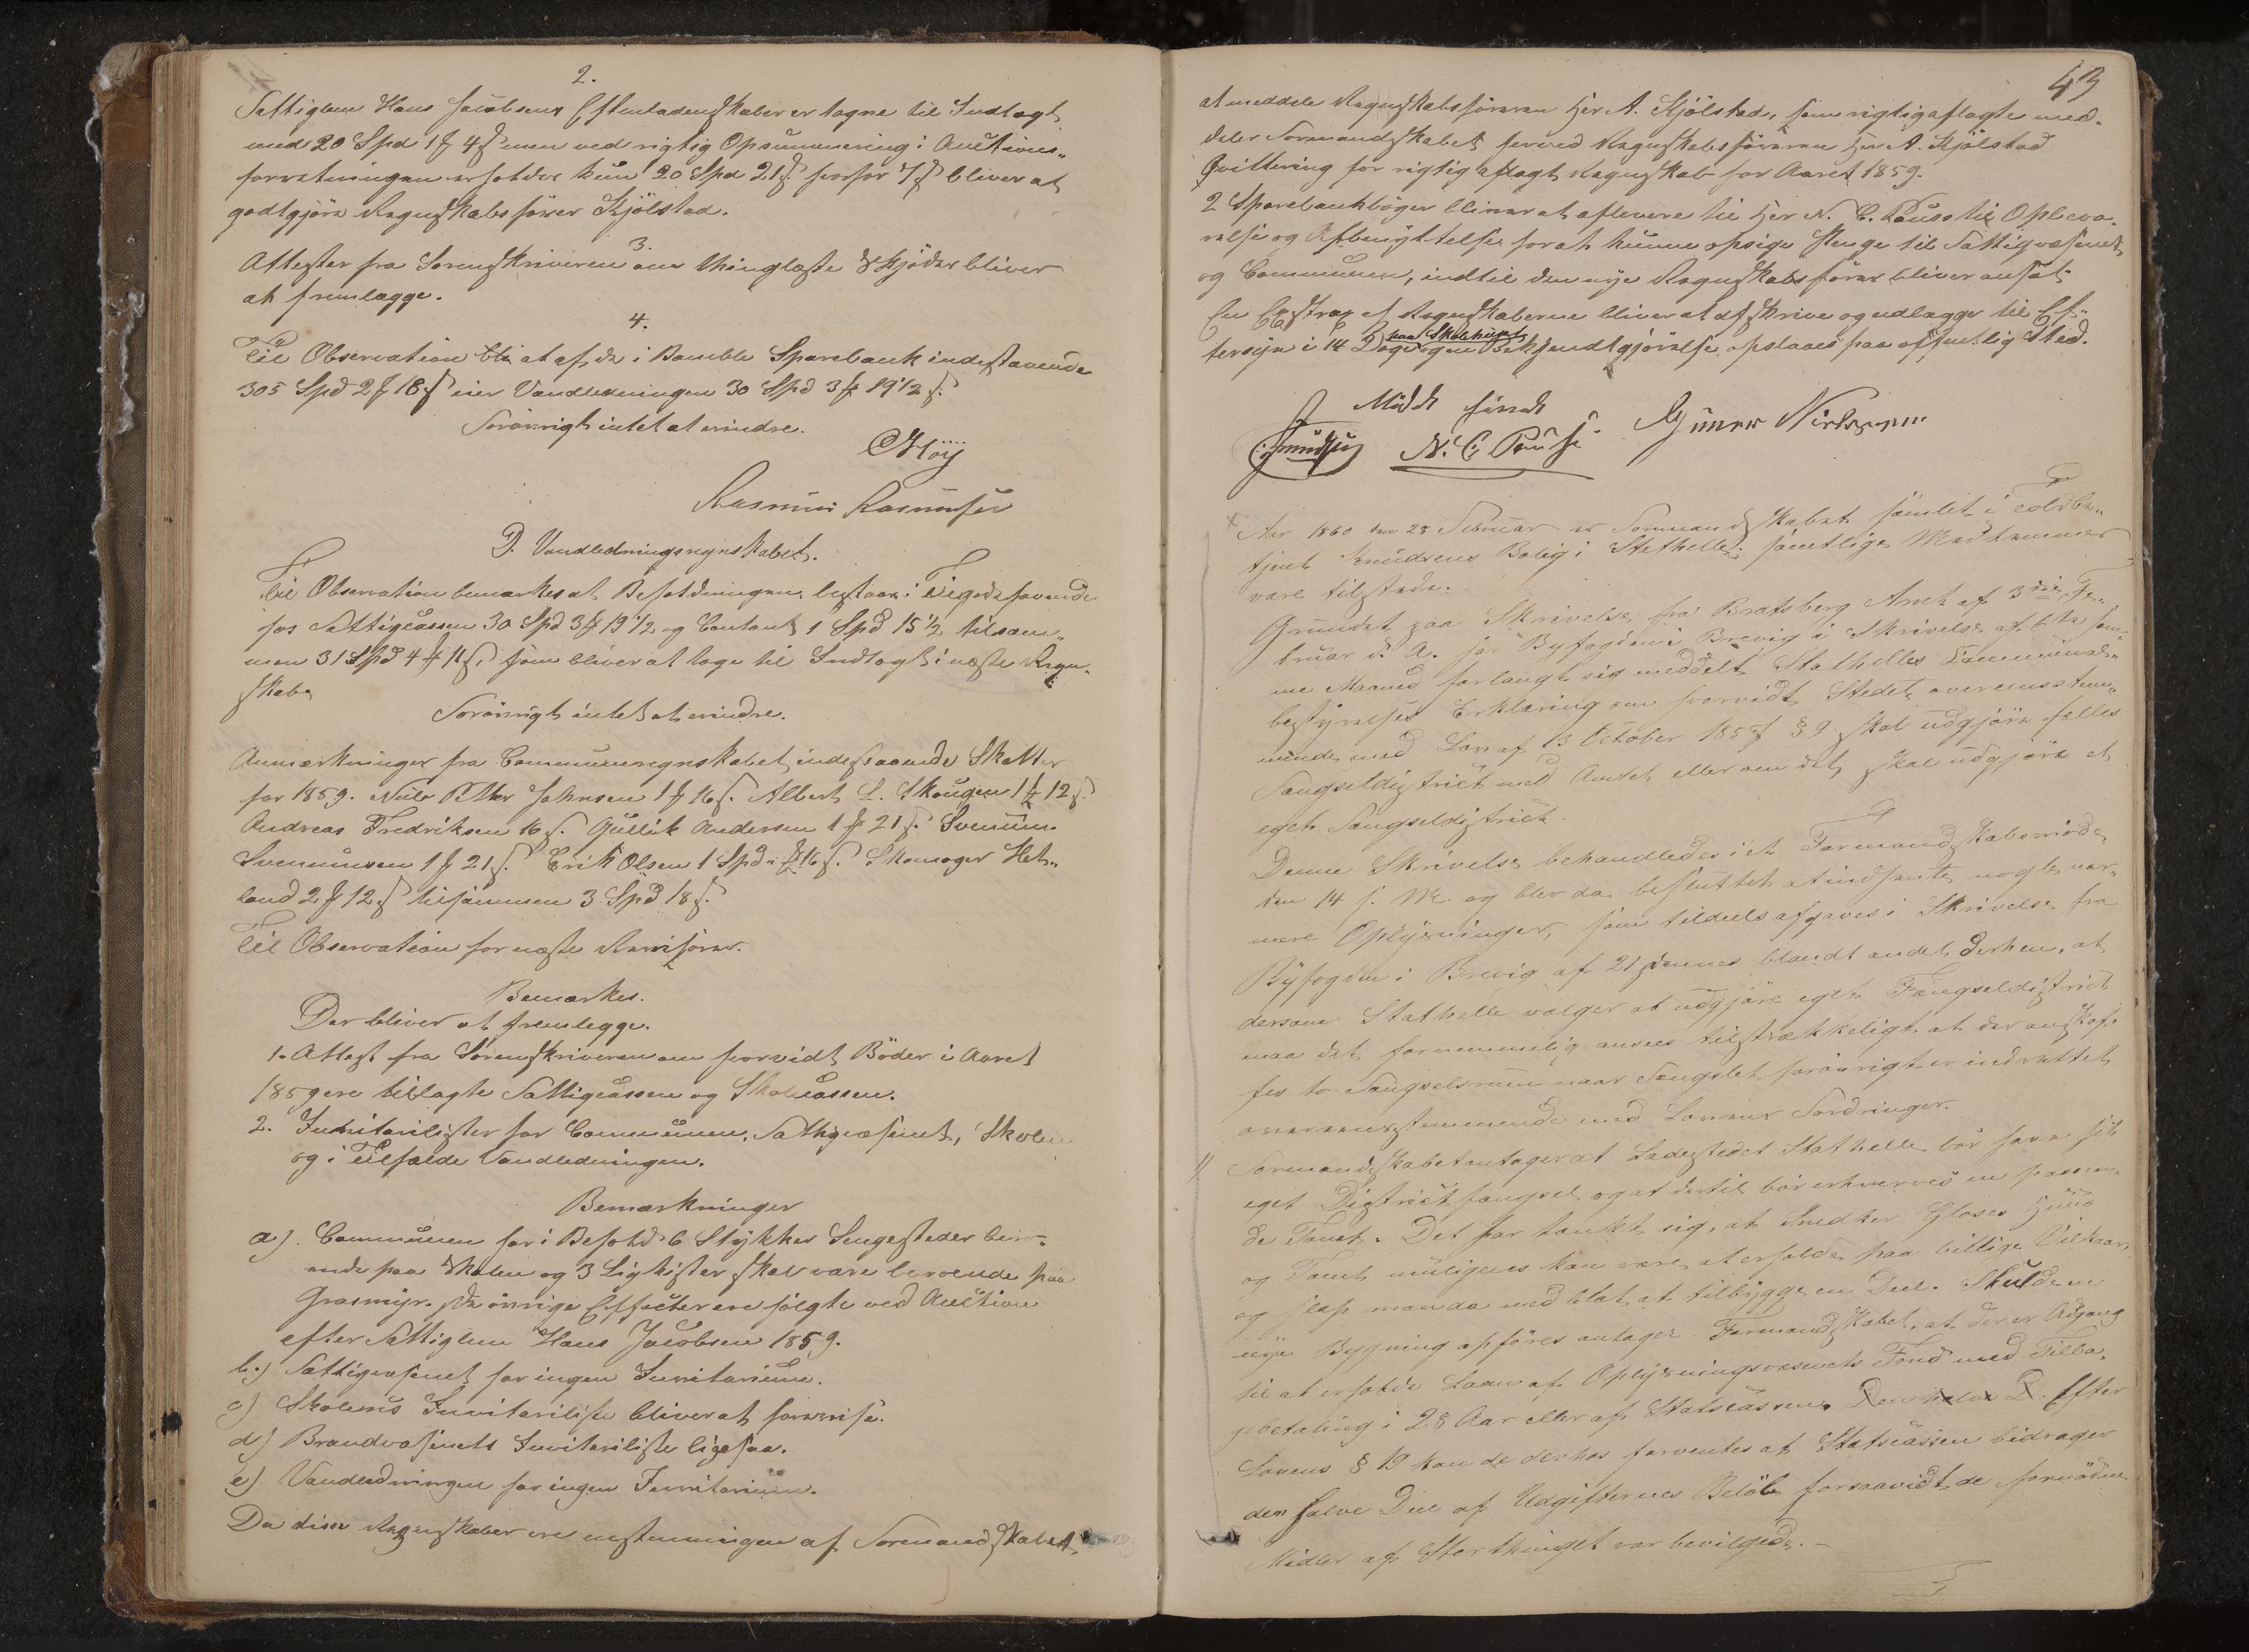 2.
Fattiglem Hans Jacobsens Efterladenskaber er tagne til Indtægt
med 20 Spd 1 ₰ 4 ß men ved rigtig Opsummering i Auctions-
forretningen erholdes kun 20 Spd 21 ß hvorfor 7 ß bliver at
godtgjöre Regnskabsförer Kjölstad.
3.
Attester fra Sorenskriveren om thinglæste Skjöder bliver
at fremlægge.
4.
Til Observation bli at af de i Bamble Sparebank indestaaende
305 Spd 2 ₰ 18 ß eier Vandledningen 30 Spd 3 ₰ 19 1/2 ß.
Forövrigt intet at erindre.
CHöy
Rasmus Rasmussen
D. Vandledningsregnskabet.
Til Observation bemærkes at Beholdningen bestaar i Tilgodehavende
hos Fattigcassen 30 Spd 3 ₰ 19 1/2 og Contant 1 Spd 15 1/2 tilsam-
men 31 Spd 4 ₰ 11 ß, som bliver at tage til Indtægt i næste Regn-
skab.
Forövrigt intet at erindre.
Anmærkninger fra Communeregnskabet indestaaende Skatter
for 1859. Niels Peter Johnsen 1 ₰ 16 ß. Albert L. Skougen 1 ₰ 12 ß.
Andreas Fredriksen 16 ß. Gullik Andersen 1 ₰ 21 ß. Svenum
Svennunsen 1 ₰ 21 ß. Erik Olsen 1 Spd - ₰ 16 ß. Skomager Het-
land 2 ₰ 12 ß tilsammen 3 Spd 18 ß.
Til Observation for næste Revisorer.
Bemærkes.
Der bliver at fremlegge.
1. Attest fra Sorenskriveren om hvorvidt Böder i Aaret
1859 ere tillagte Fattigcassen og Skolecassen.
2. Inventarilister for Communen, Fattigvæsenet, Skolen
og i Tilfælde Vandledningen.
Bemærkninger
a). Communen har i Behold 6 Stykker Sengesteder bero-
ende paa Skolen og 3 Ligkister skal være beroende paa
Grasmyr. De övrige Effecter ere solgte ved Auction
efter Fattiglem Hans Jacobsen 1859.
b.) Fattigvæsenet har ingen Inventarium.
c) Skolens Inventariliste bliver at forevise.
d) Brandvæsenets Inventariliste ligesaa.
e) Vandledningen har ingen Inventarium.
Da disse Regnskaber ere enstemmigen af Formandskabet
43
at meddele Regnskabsföreren Her A. Kjölstad, som rigtig aflagte med-
deler Formandskabet herved Regnskabsföreren Her A. Kjölstad
Qvittering for rigtig aflagt Regnskab for Aaret 1859.
2 Sparebankböger bliver at aflevere til Her N. C. Pauss til Opbeva-
relse og Afbenyttelse for at kunne opsige Penge til Fattigvæsenet
og Communen, indtil den nye Regnskabsförer bliver ansat.
En Extrax af Regnskaberne bliver at afskrive og udlægge til Ef-
paa Skolehuset
tersyn i 14 Dage og en Bekjendtgjörelse opslaaes paa offentlig Sted.
Knudsen N. C. Pauss Gunner Nielssen
Aar 1860 den 28 Februar er Formandskabet samlet i Toldbe-
tjent Knudsens Bolig i Stathelle; samtlige Medlemmer
vare tilstede.
Grundet paa Skrivelse fra Bratsberg Amt af 3die Fe-
bruar d. A. har Byfogden i Brevig i Skrivelse af 6te sam-
me Maaned forlangt sig meddelt Stathelles Communal-
bestyrelses Erklæring om hvorvidt Stedet overensstem-
mende med Lov af 13 October 1857 § 9 skal udgjöre fælles
Fængseldistrict med Amtet eller om det skal udgjöre et
eget Fængseldistrict.
Denne Skrivelse behandledes i et Formandskabsmöde
den 14 f. M. og blev da besluttet at indhente nogle nær-
mere Oplysninger, som tildeels afgaves i Skrivelse fra
Byfogden i Brevig af 21 dennes blandt andet derhen, at
dersom Stathelle vælger at udgjöre eget Fængseldistrict
maa det formenmelig ansees tilstrækkeligt, at der anskaf-
fes to Fængselsrum naar Fængslet forövrigt er indrettet
overensstemmende med Lovens Fordringer.
Formandskabet antager at Ladestedet Stathelle bör have sit
eget Districtfængsel og at dertil bör erhverves en passen-
de Tomt. Det har tænkt sig, at Snedker Gloses Huus
og Tomt muligens kan være at erholde paa billige Vilkaar
og hjalp man da med blot at tilbygge en Deel. Skulde en
nye Bygning opföres antager Formandskabet, at der er Adgang
til at erholde Laan af Oplysningsvæsenets Fond med Tilba-
gebetaling i 28 Aar eller af Statscassen. Den halve D. Efter
Lovens § 19 kan de derhos forventes at Statscassen bidrager
den halve Deel af Udgifternes Belöb forsaavidt de fornödne
Midler af Storthinget var bevilgede.